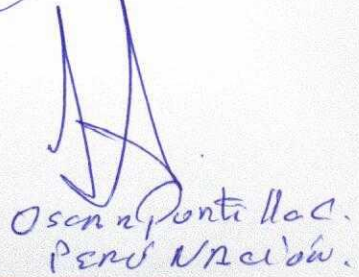 Oscar Portilla C.
PERÚ NACIÓN.